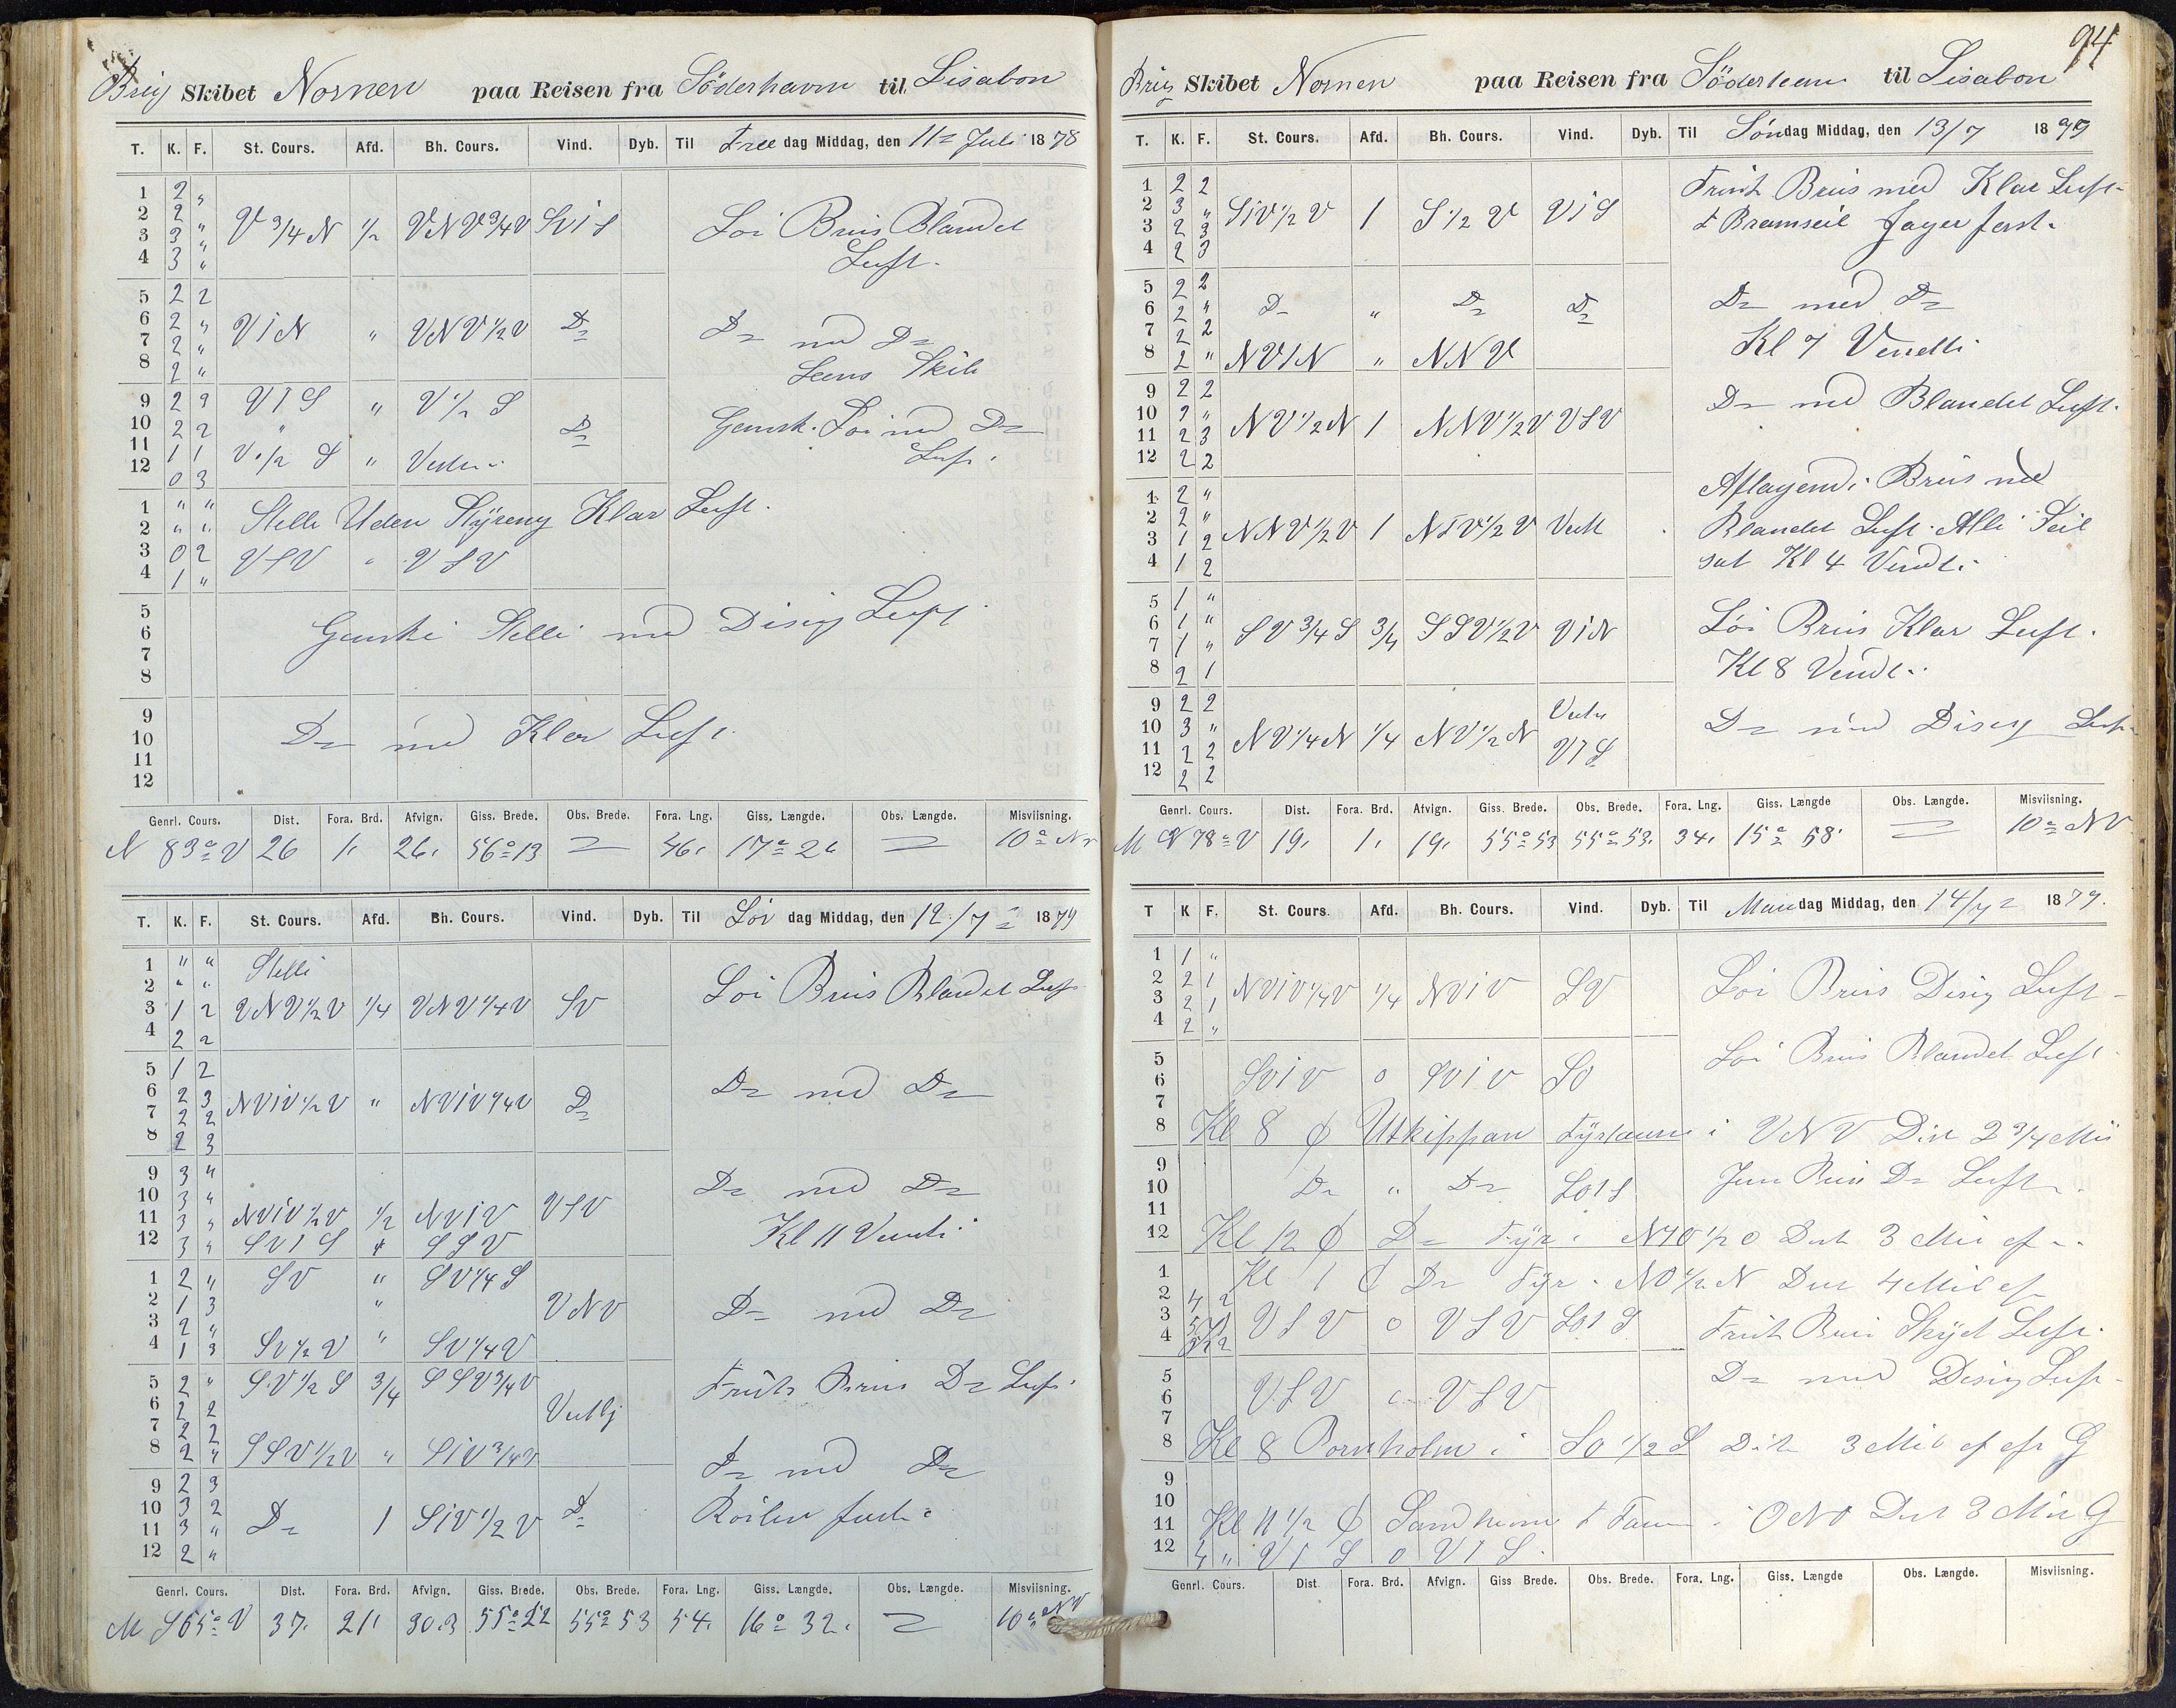 Brig Skibet Nornen paa Reisen fra Söderhavm til Lisabon
T. K. F. St. Cours. Afd. Bh. Cours. Vind. Dyb. Til Free dag Middag, den 11= Juli 1878
1 2 "
2 2 " V 3/4 N 1/2 VNV 3/4 V SViS Loi Briis Blandet
3 3 "
4 3 " Luft.
5 2 2
6 2 " ViN " VNV 1/2 V D= D= med D=
7 2 "
8 2 " Leens Skib
9 2 2 V I S " V 1/2 S
10 2 2 " D= Gansk. Loi med D=
11 1 1 V 1/2 S " Luft.
12 0 3
1 " " Stelle Uden Styreng Klar Luft.
2 " "
3 0 2 VSV " VSV
4 1 "
5
6 Ganske Stelle med Disig Luft.
7
8
9
10 D= med Klar Luft.
11
12
Genrl. Cours. Dist. Fora. Brd. Afvign. Giss. Brede. Obs. Brede. Fora. Lng. Giss. Længde. Obs. Længde. Misviisning.
N 83° V 26 1. 26. 56° 13 = 46. 17° 26 = 10°
T. K. F. St. Cours. Afd. Bh. Cours. Vind. Dyb. Til Lör dag Middag, den 12/7 = 1879
1 " " Stelle
2 " " Loi Briis Blandet Luft
3 1 2 VNV 1/2 V 1/4 VNV 1/4 V SV
4 2 2
5 1 2
6 2 3 NViV 1/2 V " NViV 1/4 V D= D= med D=
7 2 2
8 2 3
9 3 "
10 3 " D= med D=
11 3 " NViV 1/2 V 1/2 NViV VSV
12 3 " SVIS " SSV Kl 11 Vendt.
1 2 " SV " SV 1/4 S
2 1 3 " VNV D= med D=
3 2 "
4 1 3 SV 1/2 V " SV 1/4 V
5 2 " SV 1/2 S 3/4 SSV 3/4 V Frisk Briis D= Luft.
6 2 2
7 2 2
8 2 " SSV 1/2 V " SiV 3/4 V D= med D=
9 2 3
10 3 2 D= 1 SiV 1/2 V D=
11 3 "
12 2 "
Genrl. Cours. Dist. Fora. Brd. Afvign. Giss. Brede. Obs. Brede. Fora. Lng. Giss. Længde. Obs. Længde. Misviisning.
M S 65° V 37. 21. 30.3 55° 22 55° 53 54. 16° 32. = 10° NV
94
Brig Skibet Nornen paa Reisen fra til Lisabon
T. K. F. St. Cours. Afd. Bh. Cours. Vind. Dyb. Til Söndag Middag, den 13/7 1879
1 2 2 Frisk Briis med Klar Luft
2 3 " SiV 1/2 V 1 S 1/2 V ViS
3 2 3 & Bramseil Jager fast.
4 2 3
5 2 2
6 2 " D= " D= D= D= med D=
7 2 2 Kl 7 Vendt.
8 2 " NVIN " NNV
9 2 2 D= med Blandet Luft.
10 2 " NV 1/2 N 1 NNV 1/2 V VSV
11 2 3
12 2 2
1 2 " Aflagend. Briis med
2 2 " NNV 1/2 V 1 Vest
3 1 2 Blandet Luft. Alle Seil
4 1 2 sat Kl 4 Vendt.
5 1 "
6 1 " SV 3/4 S 3/4 SSV 1/2 V ViN Löi Briis Klar Luft.
7 1 "
8 2 1 Kl 8 Vendt.
9 2 2
10 3 " NV 1/4 N 1/4 NV 1/2 N D= med Disig Luft
11 2 2 VIS
12 2 2
Genrl. Cours. Dist. Fora. Brd. Afvign. Giss. Brede. Obs. Brede. Fora. Lng. Giss. Længde Obs. Længde. Misviisning.
M N 78° V 19. 1. 19. 55° 53 55° 53. 34. 15° 58' = 10° NV
T K F. St. Cours. Afd. Bh. Cours. Vind. Dyb. Til Mandag Middag, den 14/7 = 1879.
1 1 "
2 2 1 NViV 1/4 V 1/4 NViV SV Loi Briis Disig Luft
3 2 1
4 2 "
5 Loi Briis Blandet Luft
6 SViV 0 SViV SO
7
8 Kl 8 Utkippan Fyrtaarn i VNV Dist 2 3/4 Mil
9
10 D= " D= SOIS D= Luft
11
12 Kl 12 D= Fyr i 1/2 O Dist 3 Mil
1 Kl 1 D= Fyr i NO 1/2 N Dist 4 Mil
2 4 2
3 VSV 0 VSV SOIS
4 Frisk Briis Skyet Luft.
5 D= med Disig Luft
6 VSV VSV
7
8 Kl 8 Bornholm i SO 1/2 S Dist 3 Mil G
9
10
11 Kl 11 1/2 i ONO Dist 3 Mil G
12 4 " VIS 0 VIS.
Genrl. Cours. Dist Fora. Brd. Afvign. Giss Brede. Obs. Brede. Fora. Lng. Giss. Længde Obs. Længde. Misviisning.